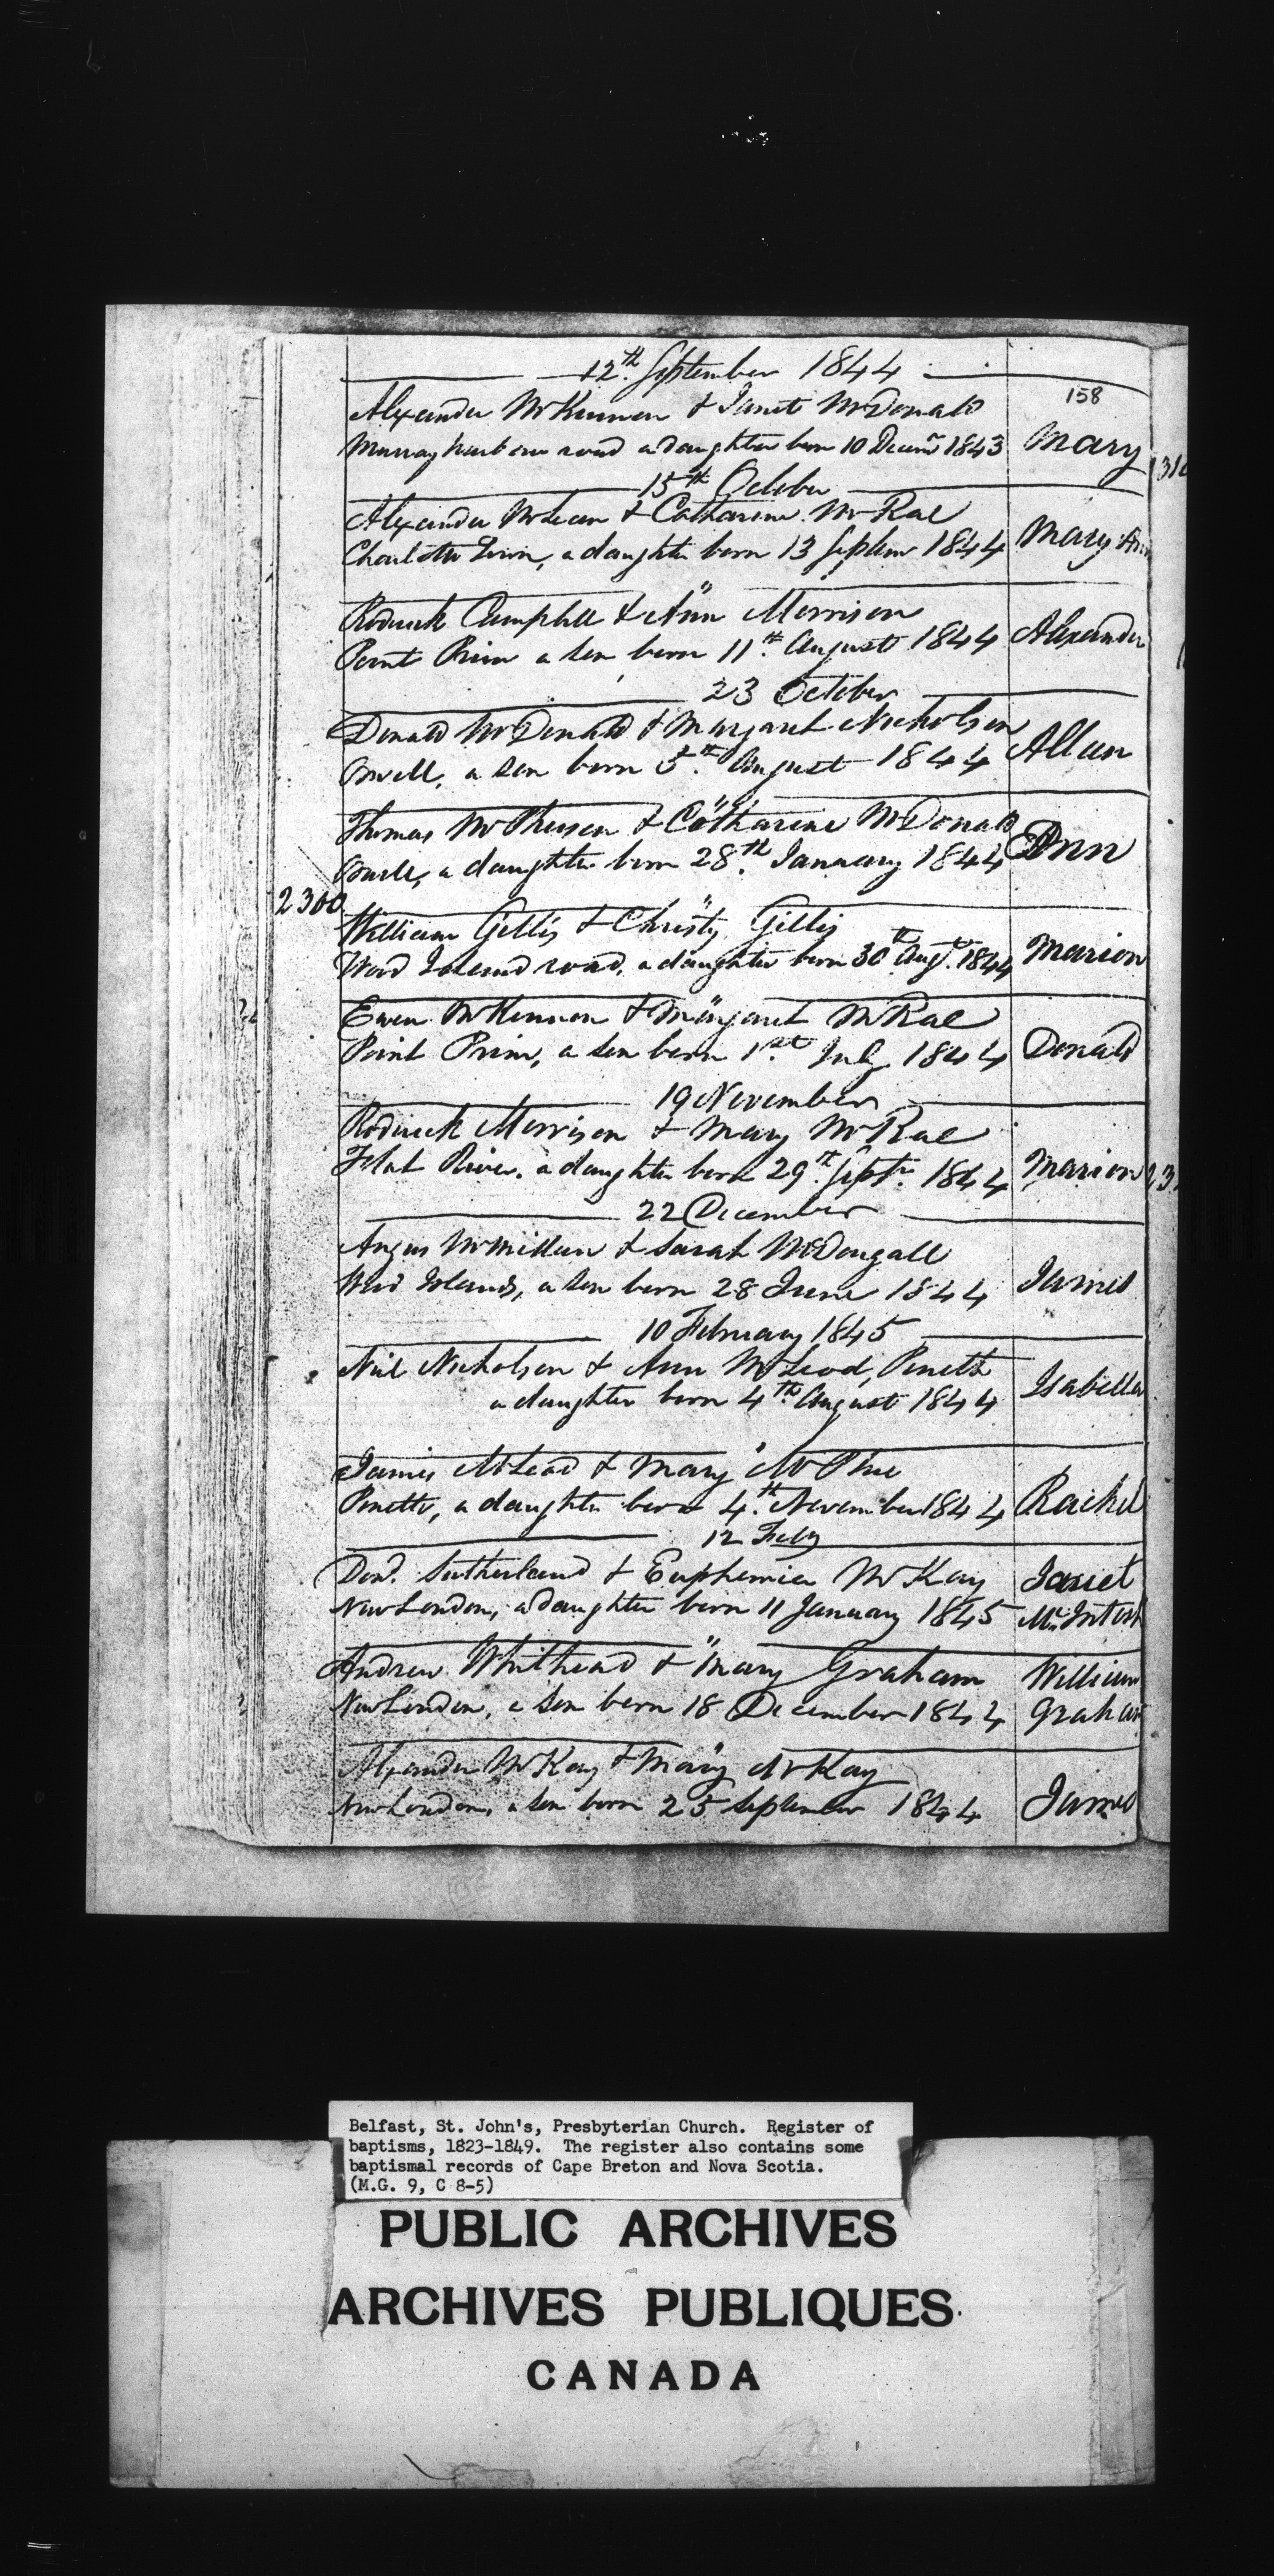 12th September 1844
158
Alexander McKinnon & Janet McDonald
Murray harbour road a daughter born 10 Decemr 1843 Mary
15th October
Alexander McLean & Catharine McRae
Charlotte Town, a daughter born 13 Septemr 1844 Mary Ann
"
Roderick Campbell & Ann Morrison
Point Prim a son born 11th August 1844 Alexander
23 October
Donald McDonald & Margaret Nicholson
Orwell, a son born 5th August 1844 Allan
"
Thomas McPherson & Catharine McDonald
Orwell, a daughter born 28th January 1844 Ann
2300
"
William Gillis & Christy Gillis
Wood Island road, a daughter born 30th Augt. 1844 Marion
"
Ewen McKinnon & Margaret McRae
Point Prim, a son born 1st July 1844 Donald
19 November
Roderick Morrison & Mary McRae
Flat River, a daughter born 29th Septr 1844 Marion
22 December
Angus McMillan & Sarah McDougall
Wood Islands, a son born 28 June 1844 James
10 February 1845
Neil Nicholson & Ann McLeod, Pinette
a daughter born 4th August 1844 Isabella
"
James McLeod & Mary McPhee
Pinette, a daughter born 4th November 1844 Rachel
12 Feby
Dond. Sutherland & Euphemia McKay Janet
New London, a daughter born 11 January 1845 McIntosh
"
Andrew Whithead & Mary Graham William
New London, a son born 18 December 1844 Graham
"
Alexander McKay & Mary McKay
New London, a son born 25 September 1844 James
Belfast, St. John's, Presbyterian Church. Register of
baptisms, 1823-1849. The register also contains some
baptismal records of Cape Breton and Nova Scotia.
(M.G. 9, C 8-5)
PUBLIC ARCHIVES
ARCHIVES PUBLIQUES
CANADA